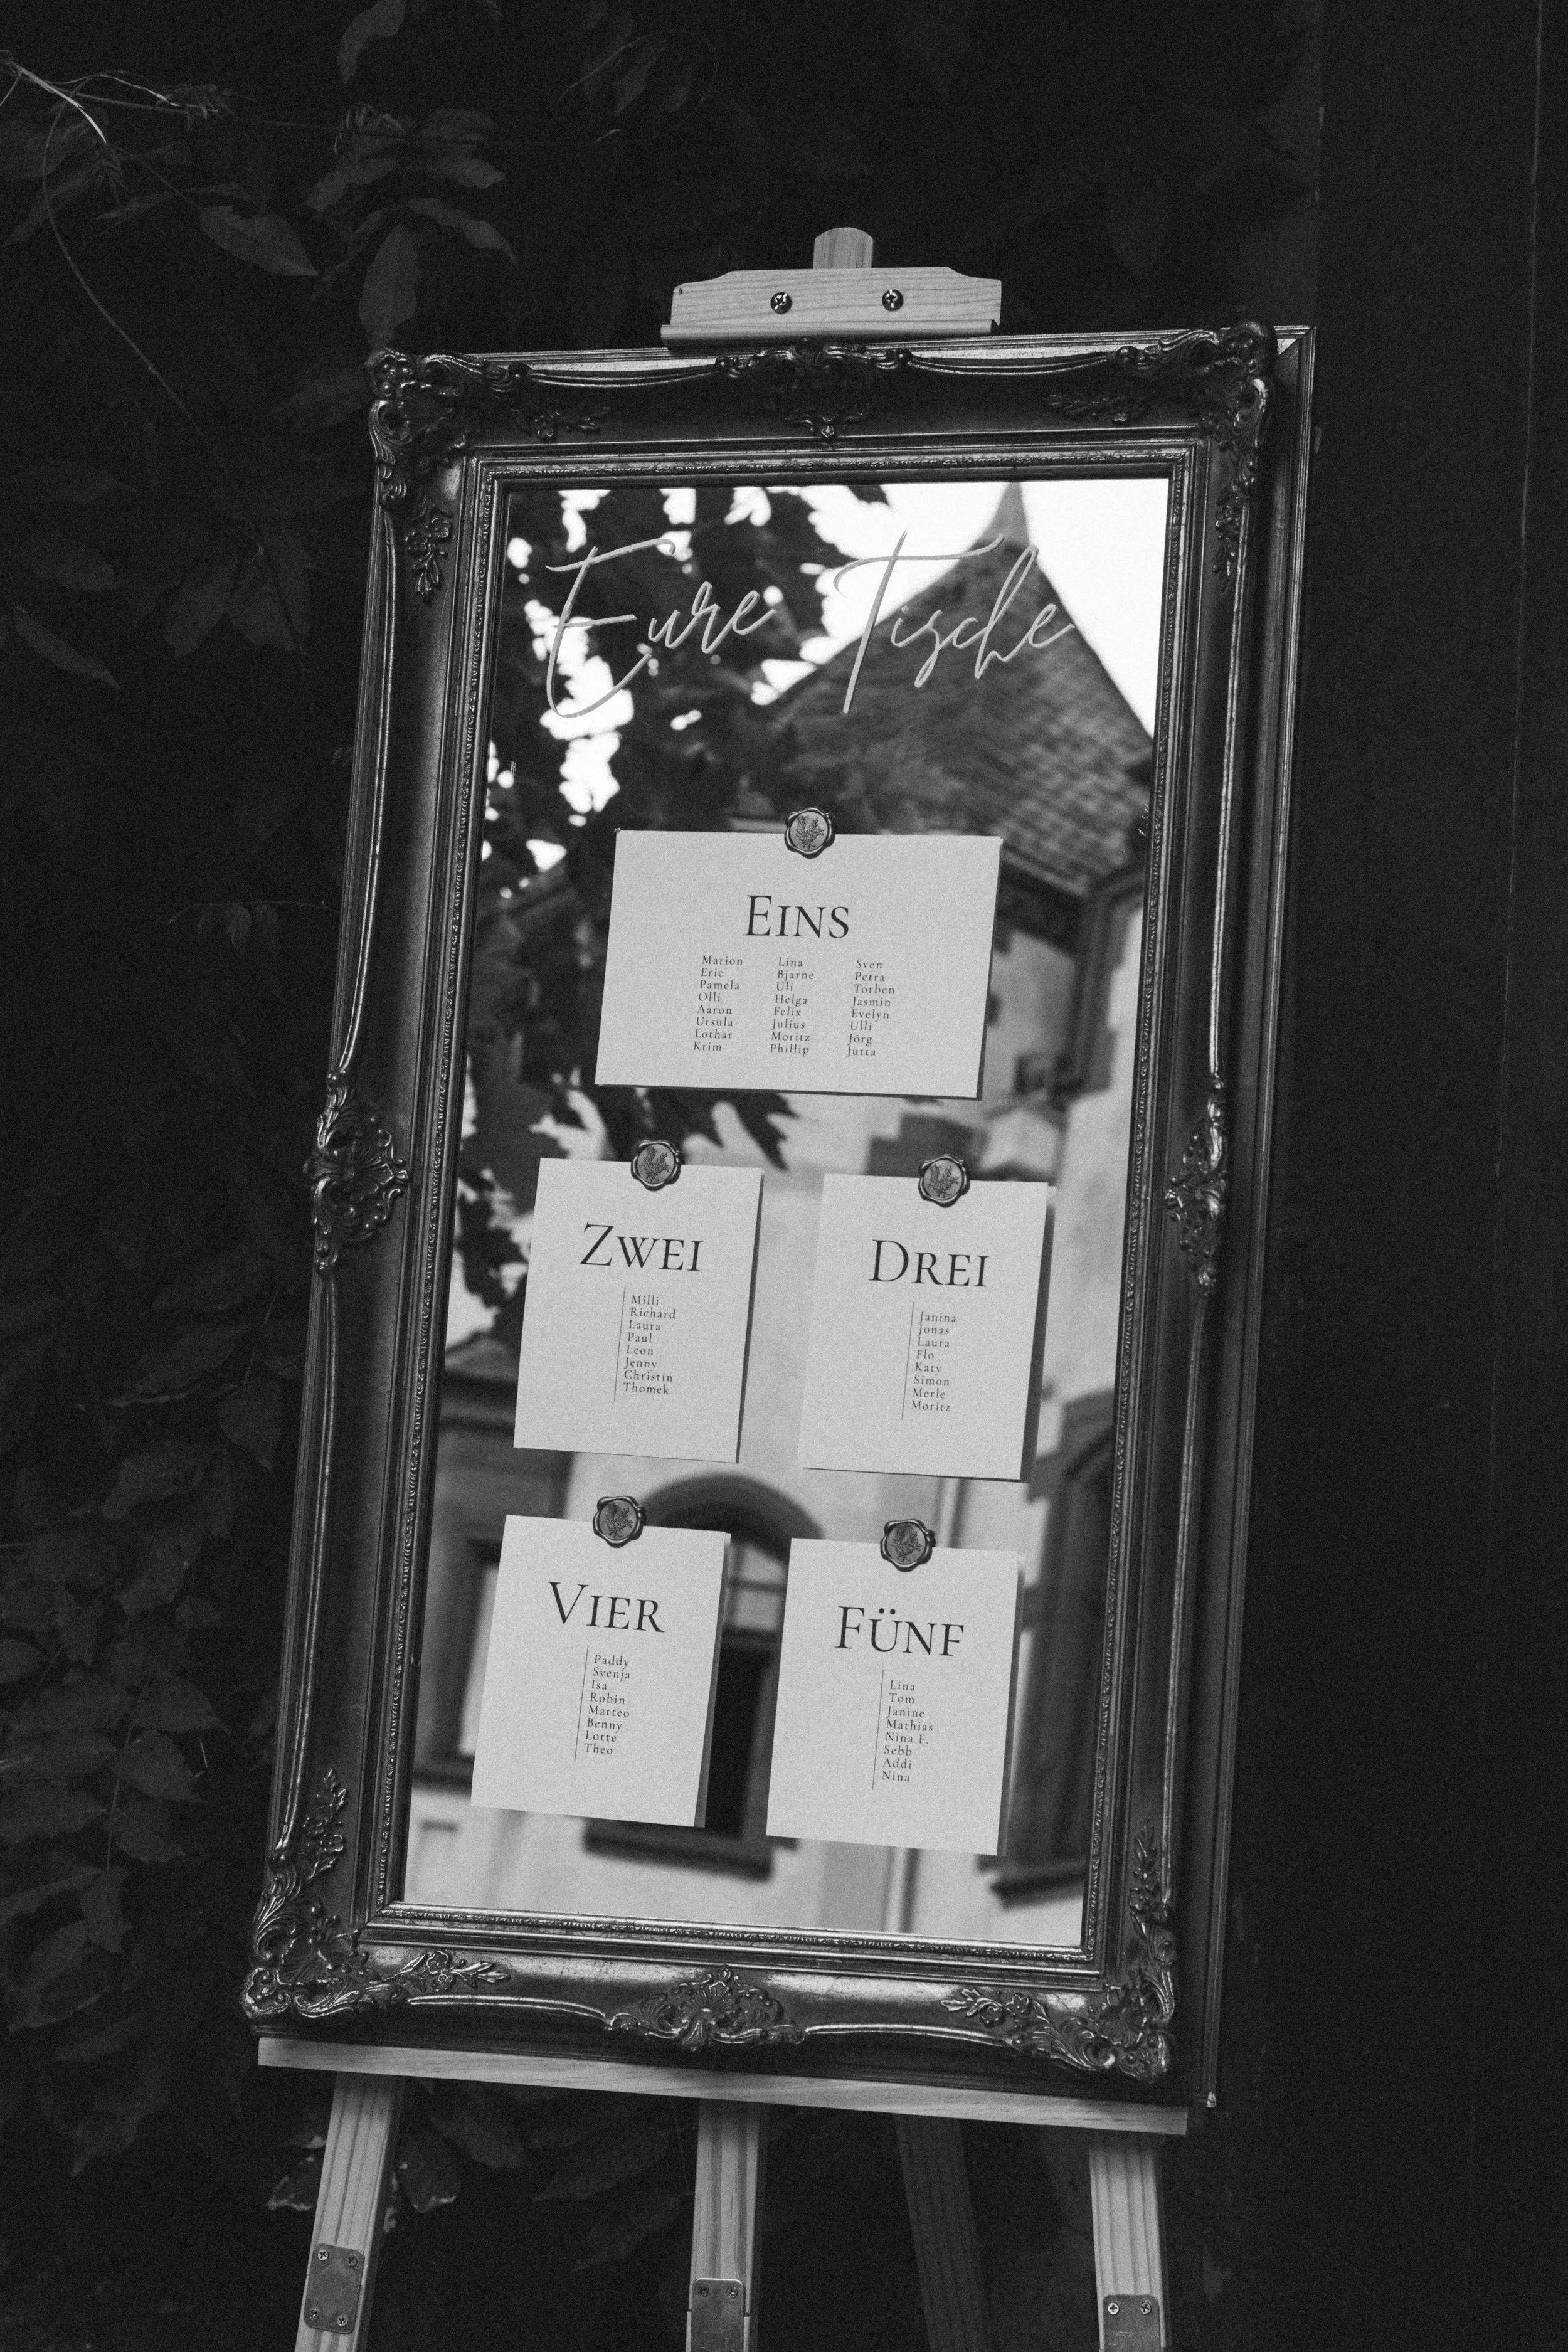 Eure Tische
EINS
Marion
Eric
Pamela
Olli
Aaron
Ursula
Lothar
Krim
Lina
Bjarne
Uli
Helga
Felix
Julius
Moritz
Phillip
Sven
Petra
Torben
Jasmin
Evelyn
Ulli
Jörg
Jutta
ZWEI
Milli
Richard
Laura
Paul
Leon
Jenny
Christin
Thomek
DREI
Janina
Jonas
Laura
Flo
Katy
Simon
Merle
Moritz
VIER
Paddy
Svenja
Isa
Robin
Matteo
Benny
Lotte
Theo
FÜNF
Lina
Tom
Janine
Mathias
Nina F.
Sebb
Addi
Nina